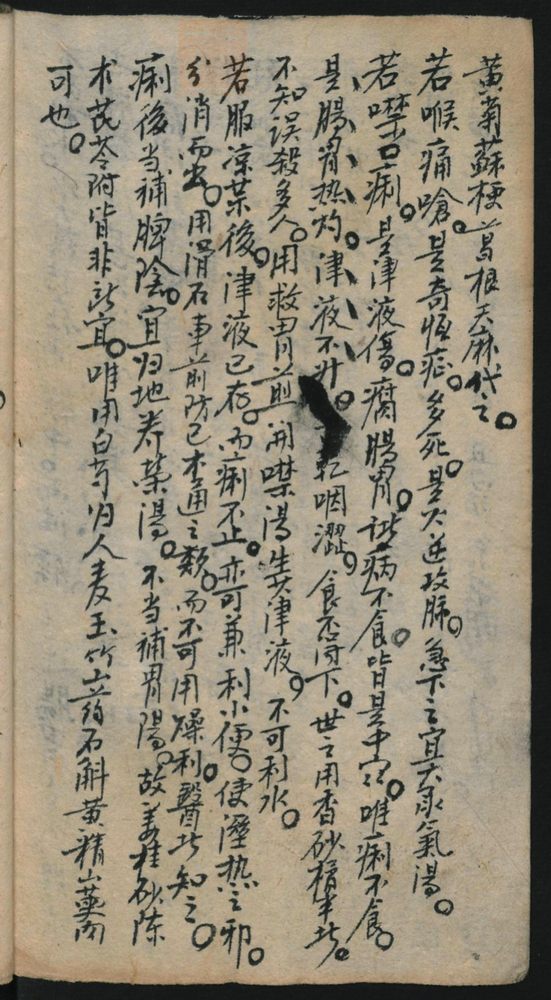 黃菊蘇梗葛根天麻代之。
若喉痛嗆。是奇恒症。多死。是火逆攻肺。急下之宜大承氣湯。
若噤口痢。是津液傷。腐腸胃。諸病不食。皆是中宮。唯痢不食。
是腸胃热灼。津液不升。乾咽澀。食忌同下。世之用香砂楂半者。
不知误殺多人。用救胃煎開噤湯生其津液。不可利水。
若服凉葯後。津液已存。而痢不止。亦可兼利小便。使溼热之邪。
分消而出。用滑石車前防己木通之類。而不可用燥利。醫者知之。
痢後当補脾陰。宜归地养榮湯。不当補胃陽。故姜桂砂陈
术芪苓附皆非所宜。唯用白芍归人麦玉竹山药石斛黄精山薬肉
可也。